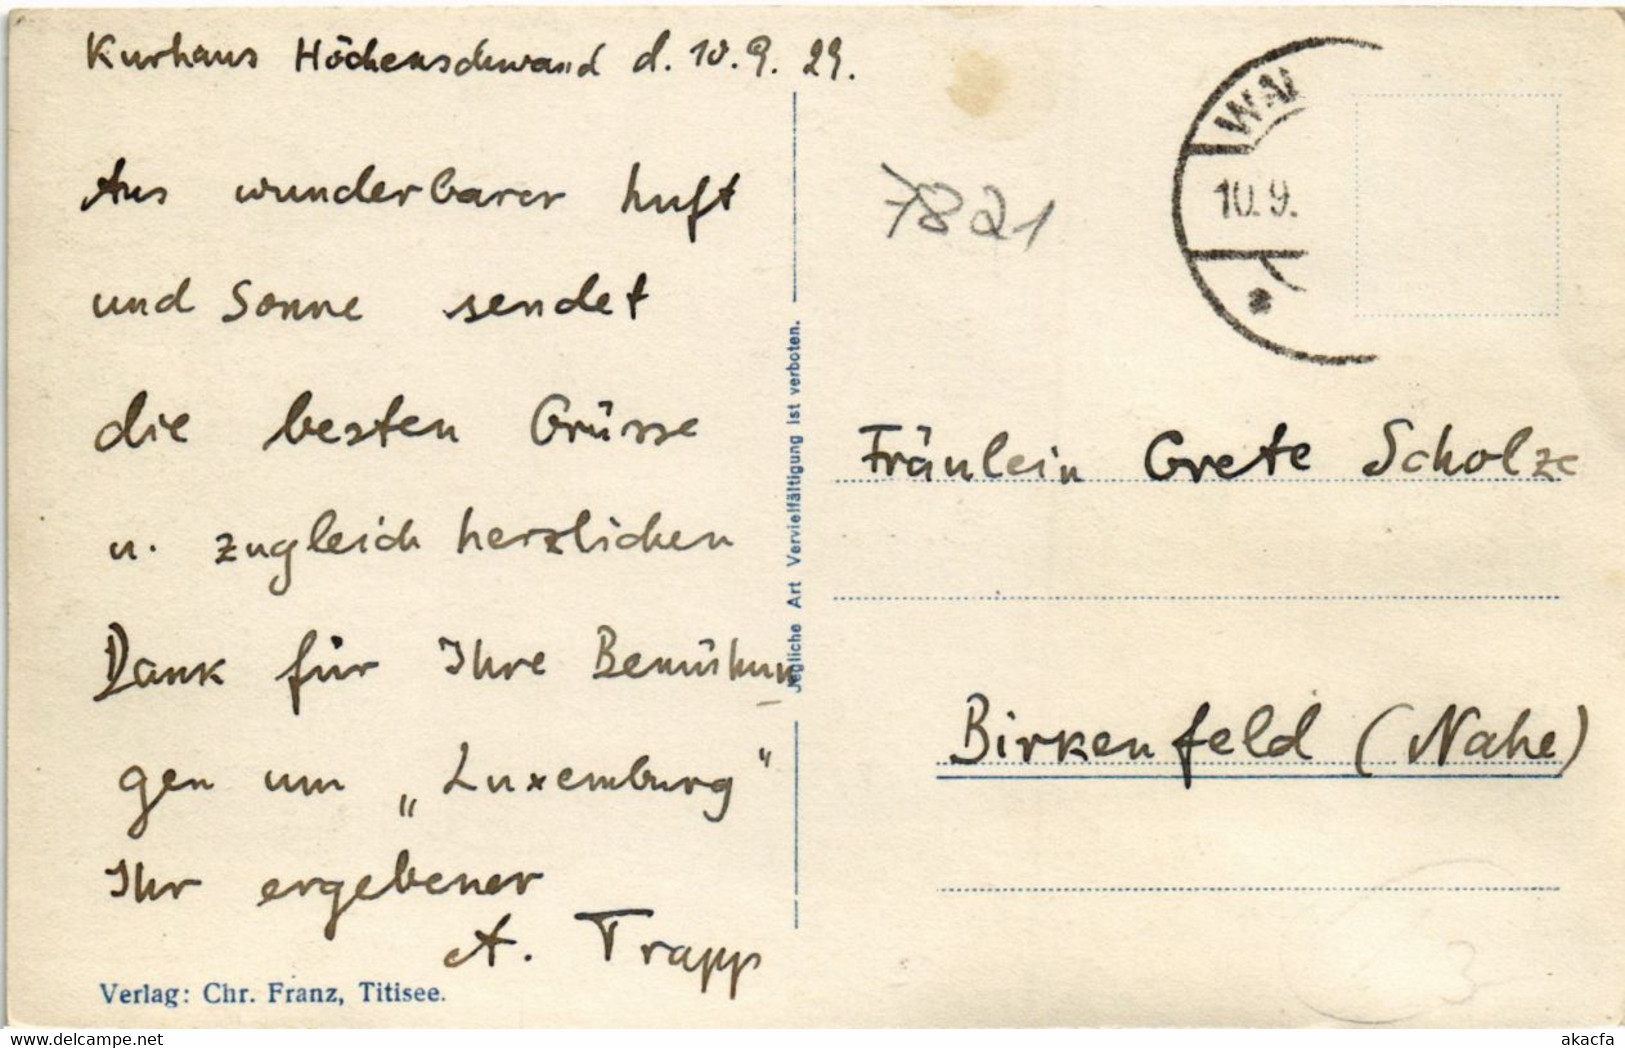 Kurhaus Höchenschwand d. 10.9.29.
Aus wunderbarer Luft
und Sonne sendet
die besten Grüsse
u. zugleich herzlichen
Dank für Ihre Bemühun_
gen um „Luxemburg"
Ihr ergebener
A. Trapp
Verlag: Chr. Franz, Titisee.
Jegliche Art Vervielfältigung ist verboten.
7821
10.9.
Fräulein Grete Scholze
Birkenfeld (Nahe)
3
akacfa